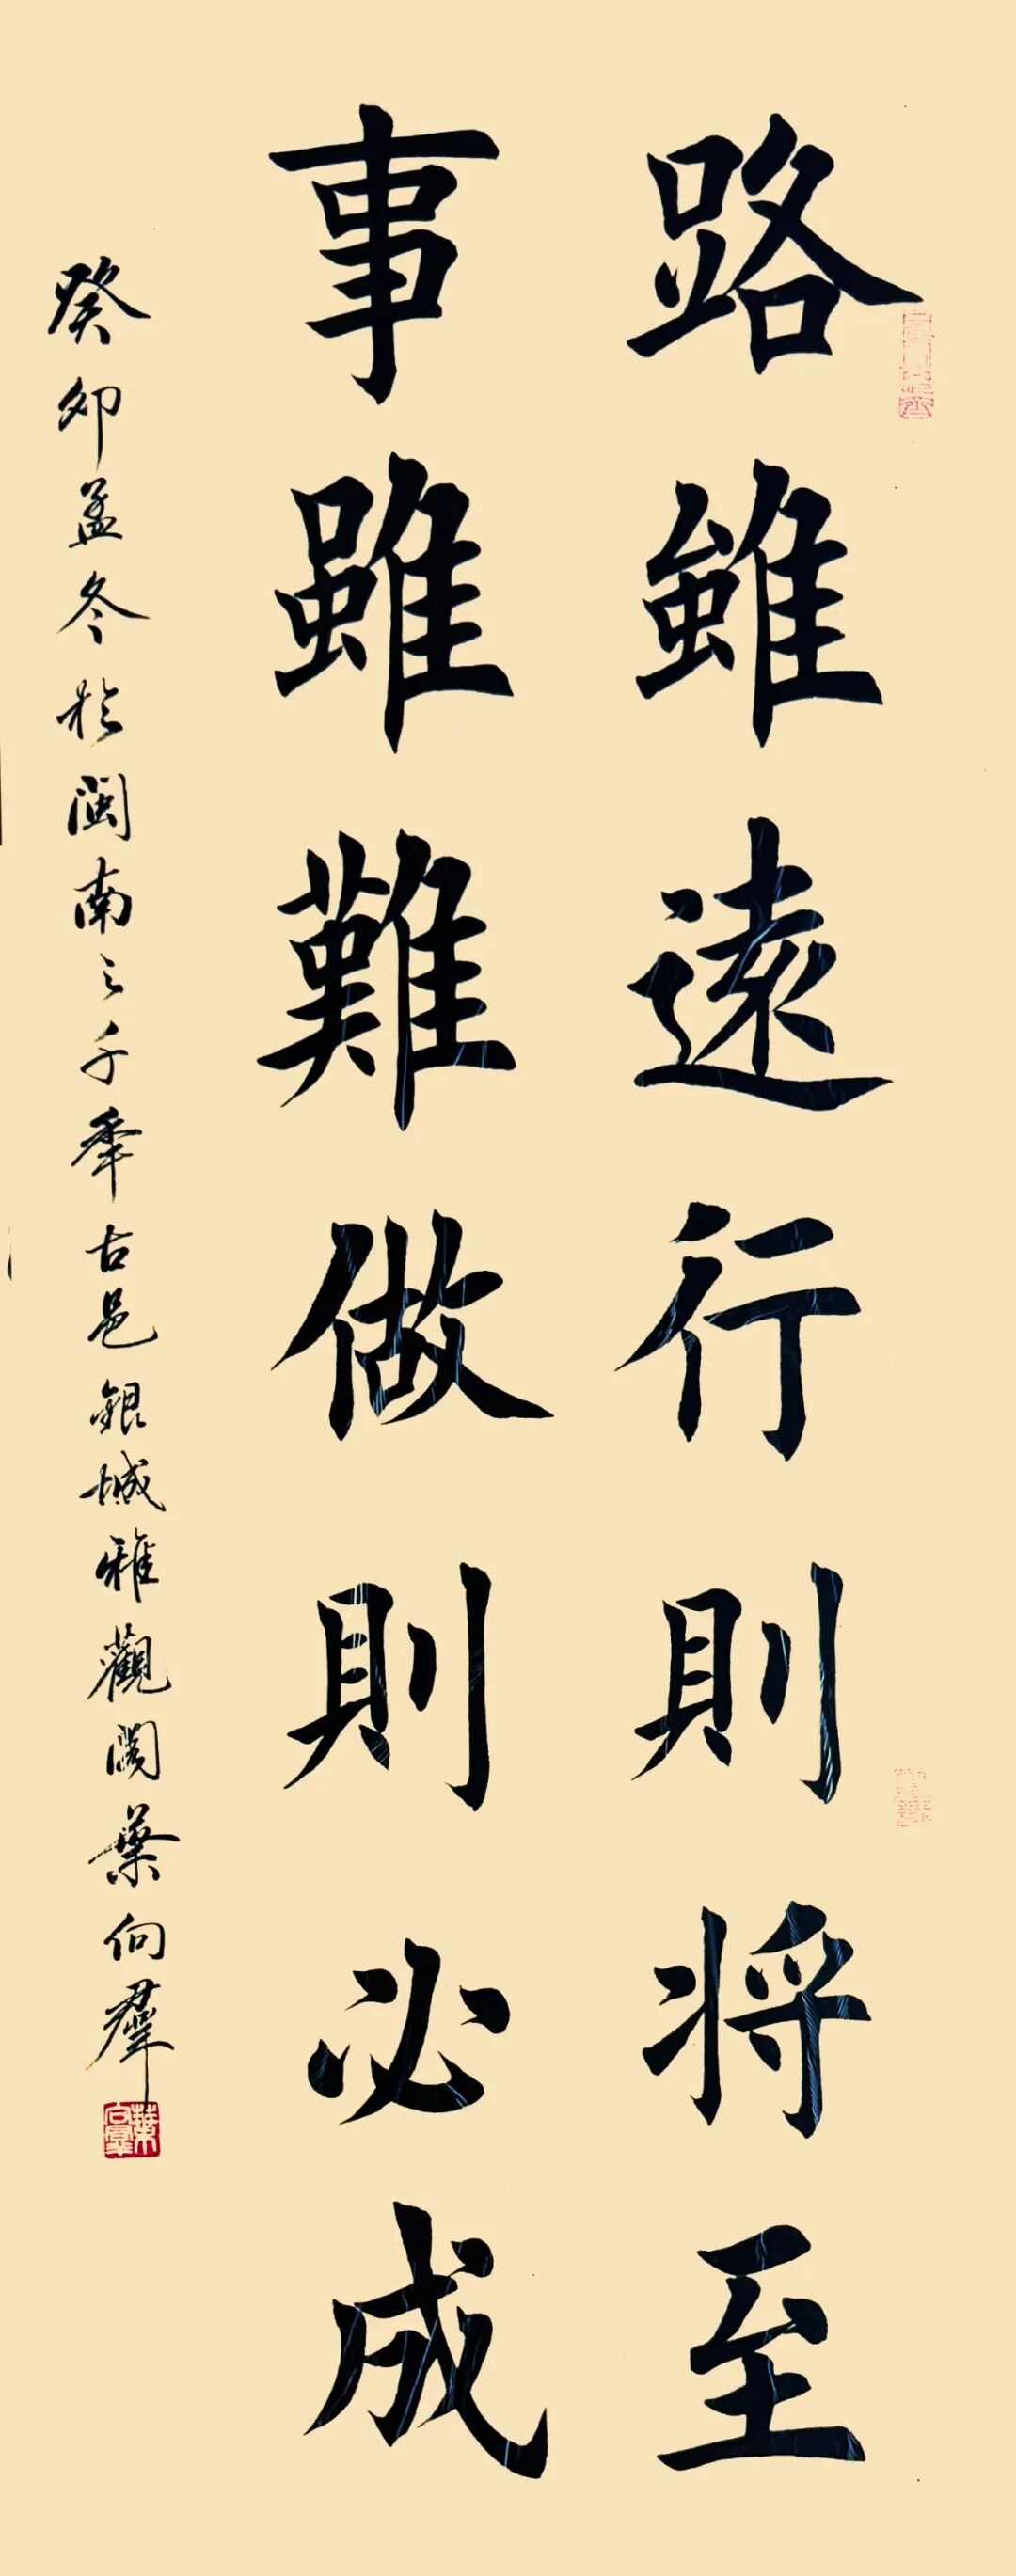 路雖遠行則将至
事雖難做則必成
癸卯孟冬於閩南之千年古邑銀城雅觀閣葉向羣
葉向羣